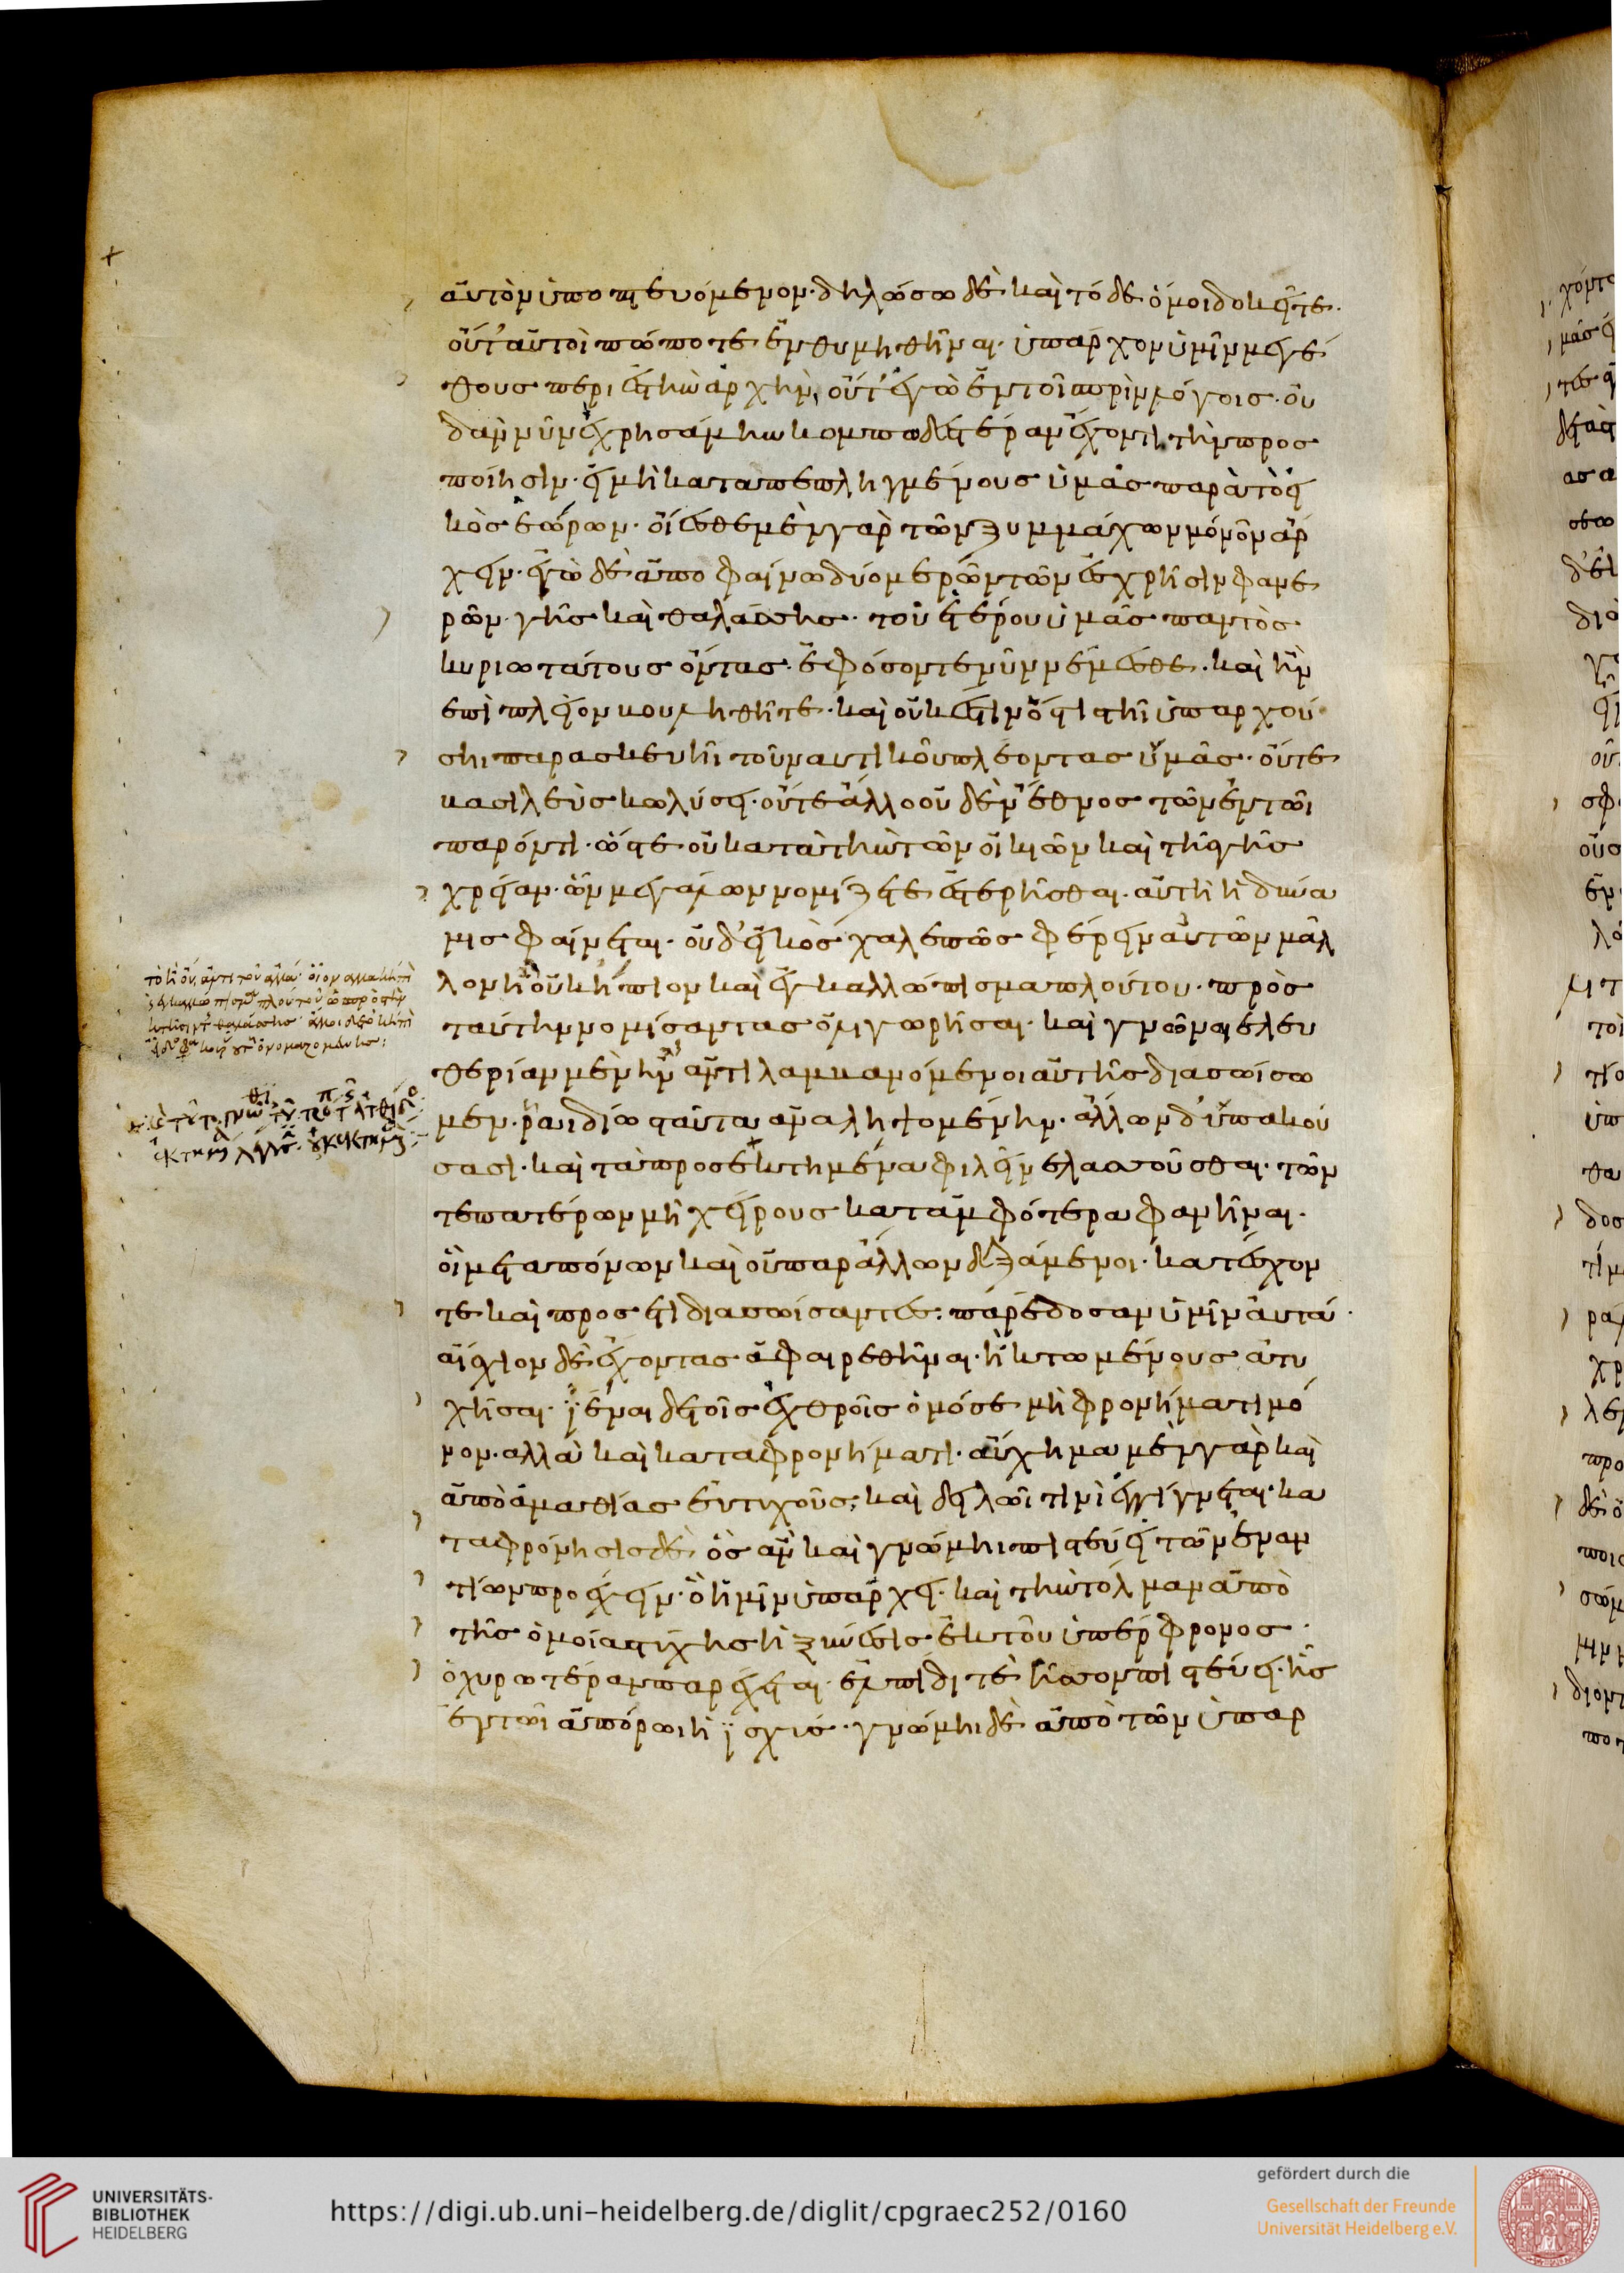 αὐτὸν ὑποπτευόμενον. δηλώσω δὲ καὶ τόδε ὅ μοι δοκεῖτε.
οὔτ' αὐτοὶ πώποτε ἐνθυμηθῆναι. ὑπάρχον ὑμῖν μεγέ
θους περι ἐς τὴν ἀρχήν, οὔτ' ἐγὼ ἐν τοῖ πρὶν λόγοις. οὐ
δ' ἂν νῦν ἐχρησάμην κομπωδεστέραν ἔχοντι τὴν προσ
ποίησιν. εἰ μὴ καταπεπληγμένους ὑμᾶς παρὰ τὸ εἰ
κὸς ἑώρων. οἴεσθε μὲν γὰρ τῶν ξυμμάχων μόνον ἄρ
χειν. ἐγὼ δὲ ἀποφαίνω δύο μερῶν τῶν ἐς χρῆσιν φανε
ρῶν. γῆς καὶ θαλάσσης. τοῦ ἑτέρου ὑμᾶς παντὸς
κυριωτάτους ὄντας. ἐφόσον τε νῦν νέμεσθε. καὶ ἢν
επὶ πλεῖον βουληθῆτε. καὶ οὐκ ἔστιν ὅστις τῆι ὑπαρχού
σηι παρασκευῆι τοῦ ναυτικοῦ πλέοντας ὑμᾶς. οὔτε
βασιλεὺς κωλύσει. οὔτε ἄλλο οὐδὲν ἔθνος τῶν ἐν τῶι
παρόντι. ὥστε οὐ κατὰ τὴν τῶν οἰκιῶν καὶ τῆς γῆς
χρείαν. ὧν μεγάλων νομίζετε ἐστερῆσθαι. αὕτη ἡ δύνα
μις φαίνεται. οὐδ' εἰκὸς χαλεπῶς φέρειν αὐτῶν μᾶλ
λον ἢ οὐ κηπίον καὶ ἐγκαλλώπισμα πλούτου. πρὸς
ταύτην νομίσαντας ὀλιγωρῆσαι. καὶ γνῶναι ἐλευ
θερίαν μὲν ἢν ἀντιλαμβανόμενοι αὐτῆς διασώισω
μεν. ῥαιδίως ταῦτα ἀναληψομένην. ἄλλων δ' ὑπακού
σασι. καὶ τὰ προσεκτημένα φιλεῖν ελασσοῦσθαι. τῶν
τε πατέρων μὴ χείρους κατ' ἀμφότερα φανῆναι.
οἳ μετα πόνων καὶ οὐ παρ' ἄλλων δεξάμενοι. κατέσχον
τε καὶ προσέτι διασώισαντες. παρέδοσαν ὑμῖν αὐτά.
αἴσχιον δὲ ἔχοντας ἀφαιρεθῆναι. ἢ κτωμένους ἀτυ
χῆσαι. ϊέναι δὲ τοῖς ἐχθροῖς ὁμόσε μὴ φρονήματι μό
νον. αλλὰ καὶ καταφρονήματι. αὔχημα μὲν γὰρ καὶ
ἀπὸ ἀμαθίας εὐτυχοῦς. καὶ δειλῶι τινὶ ἐγγίγνεται. κα
ταφρόνησις δὲ ὃς ἂν καὶ γνώμηι πιστεύει τῶν ἐναν
τίων προέχειν. ὃ ἡμῖν ὑπάρχει. καὶ τὴν τόλμαν ἀπὸ
τῆς ὁμοίας τύχης ἡ ξύνεσις ἐκ τοῦ ὑπέρφρονος.
ὀχυρωτέραν παρέχεται. ἐλπίδι τὲ ἧσσον πιστεύει. ἧς
ἐν τῶι ἀπόρωι ἡ ϊσχύς. γνώμηι δὲ ἀπὸ τῶν ὑπαρ
τὸ ἢ οὐ, ἀντὶ τοῦ ἀλλὰ
UNIVERSITÄTS-
BIBLIOTHEK
HEIDELBERG
https://digi.ub.uni-heidelberg.de/diglit/cpgraec252/0160
gefördert durch die
Gesellschaft der Freunde
Universität Heidelberg e.V.